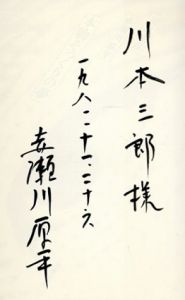 川本三郎様
一九八一・十一・二十六
赤瀬川原平